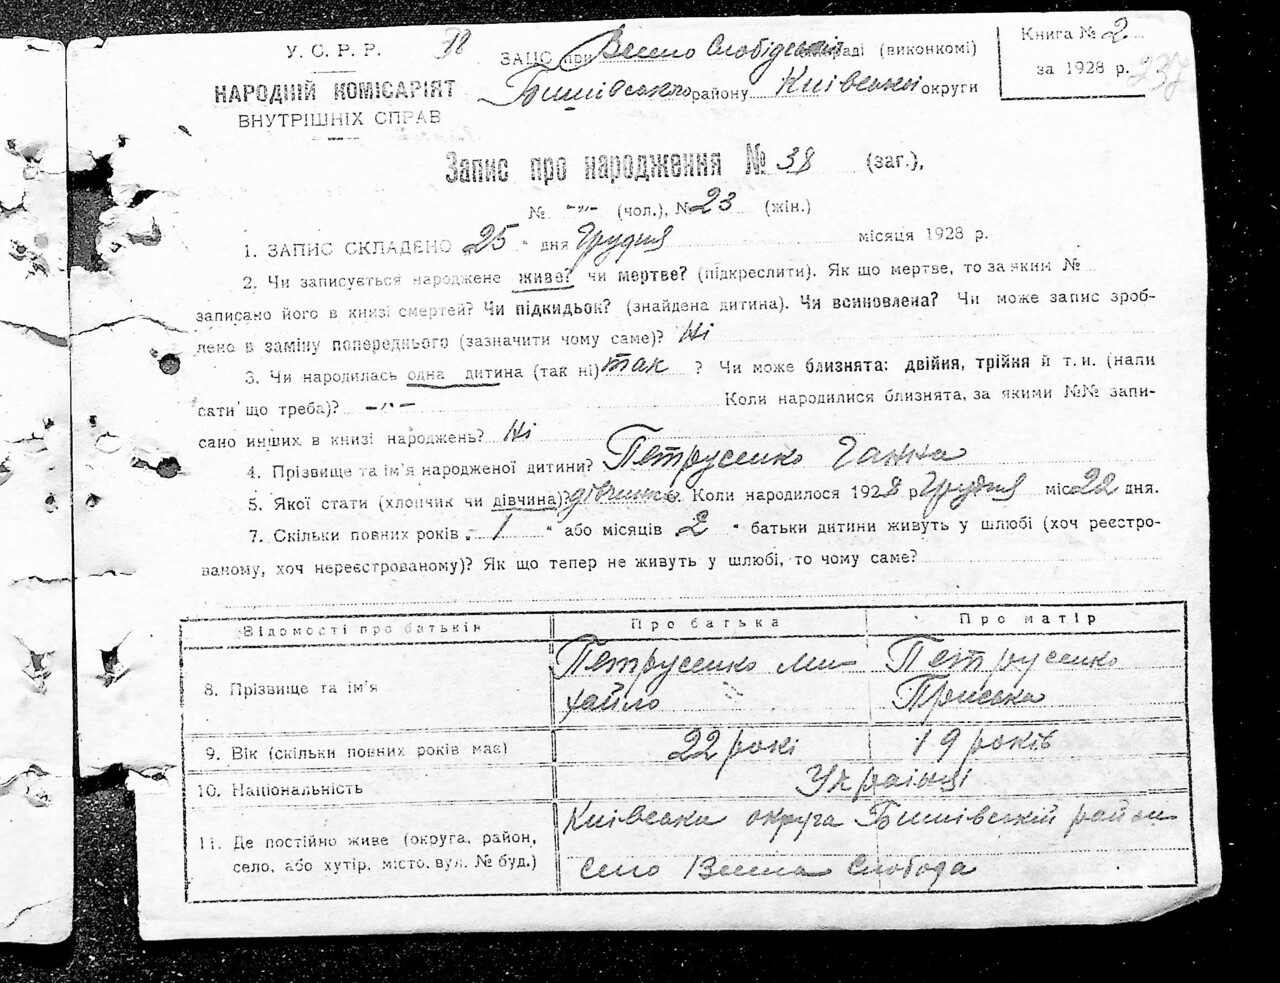 У. С. Р. Р.
38
ЗАПС при Весело Слобідській раді (виконкомі)
Книга № 2
НАРОДНІЙ КОМІСАРІЯТ
Бишівського району Київської округи
за 1928 р.
237
ВНУТРІШНІХ СПРАВ
Запис про народження № 38 (заг.),
№ -„- (чол.), № 23 (жін.)
1. ЗАПИС СКЛАДЕНО 25 " дня Грудня місяця 1928 р.
2. Чи записується народжене живе? чи мертве? (підкреслити). Як що мертве, то за яким №
записано його в книзі смертей? Чи підкидьок? (знайдена дитина). Чи всиновлена? Чи може запис зроб-
лено в заміну попереднього (зазначити чому саме)? Ні
3. Чи народилась одна дитина (так ні) так ? Чи може близнята: двійня, трійня й т. и. (напи
сати що треба)? -„- Коли народилися близнята, за якими №№ запи-
сано инших в книзі народжень? Ні
4. Прізвище та ім'я народженої дитини? Петрусенко Ганна
5. Якої стати (хлопчик чи дівчина)? дівчинка 6. Коли народилося 1928 р Грудня міс 22 дня.
7. Скільки повних років „ 1 " або місяців „ 2 " батьки дитини живуть у шлюбі (хоч реєстро-
ваному, хоч нереєстрованому)? Як що тепер не живуть у шлюбі, то чому саме?
Відомості про батьків Про батька Про матір
8. Прізвище та ім'я Петрусенко Ми- Петрусенко
хайло Приська
9. Вік (скільки повних років має) 22 рокі 19 років
10. Національність Українці
11. Де постійно живе (округа, район, Київська округа Бишівський район
село, або хутір, місто, вул. № буд.) село Весела Слобода